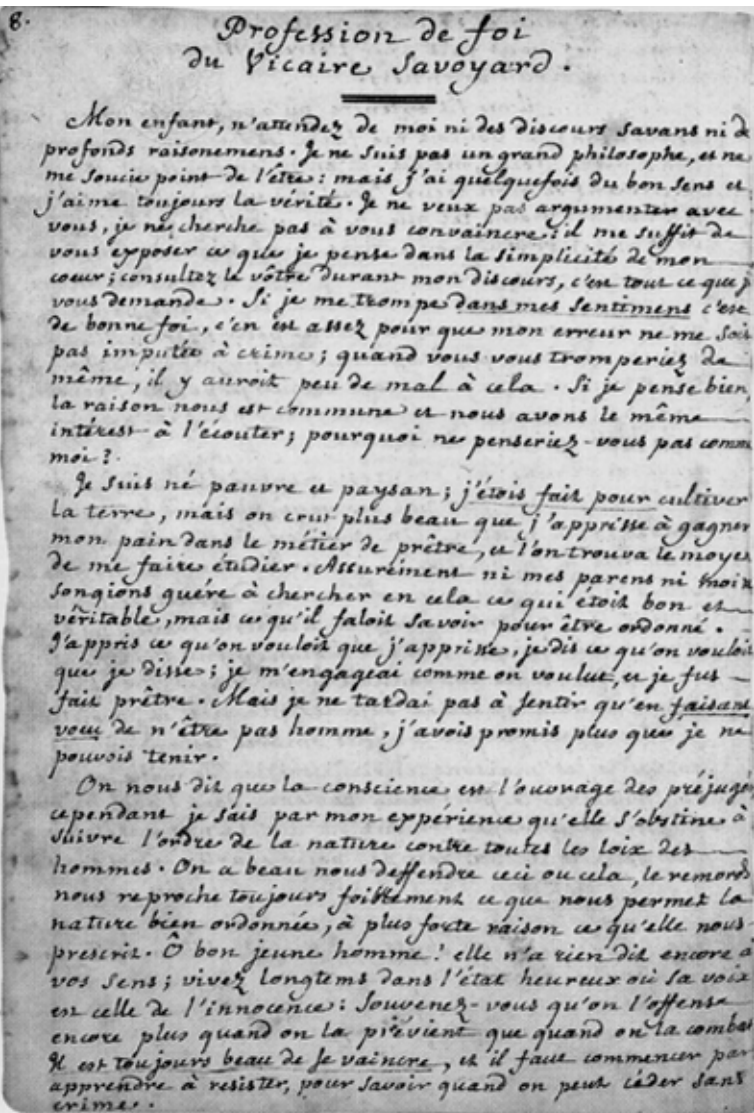 8.
Profession de foi
du Vicaire Savoyard.
Mon enfant, n'attendez de moi ni des discours savans ni de
profonds raisonemens. Je ne suis pas un grand philosophe, et ne
me soucie point de l'être : mais j'ai quelquefois du bon sens et
j'aime toujours la vérité. Je ne veux pas argumenter avec
vous, je ne cherche pas à vous convaincre ; il me suffit de
vous exposer ce que je pense dans la simplicité de mon
coeur ; consultez le vôtre durant mon discours, c'est tout ce que j
vous demande. Si je me trompe dans mes sentimens c'est
de bonne foi, c'en est assez pour que mon erreur ne me soit
pas imputée à crime ; quand vous vous tromperiez de
même, il y auroit peu de mal à cela. Si je pense bien,
la raison nous est commune et nous avons le même
intérest à l'écouter ; pourquoi ne penseriez-vous pas comme
moi ?
Je suis né pauvre et paysan ; j'étois fait pour cultiver
la terre, mais on crut plus beau que j'apprisse à gagner
mon pain dans le métier de prêtre, et l'on trouva le moyen
de me faire étudier. Assurément ni mes parens ni moi
songions guére à chercher en cela ce qui étoit bon et
véritable, mais ce qu'il faloit savoir pour être ordonné.
J'appris ce qu'on vouloit que j'apprisse, je dis ce qu'on vouloit
que je disse ; je m'engageai comme on voulut, et je fus
fait prêtre. Mais je ne tardai pas à sentir qu'en faisant
voeu de n'être pas homme, j'avois promis plus que je ne
pouvois tenir.
On nous dit que la conscience est l'ouvrage des préjugés
cependant je sais par mon expérience qu'elle s'obstine à
suivre l'ordre de la nature contre toutes les loix des
hommes. On a beau nous deffendre ceci ou cela, le remord
nous reproche toujours foiblement ce que nous permet la
nature bien ordonnée, à plus forte raison ce qu'elle nous
prescrit. Ô bon jeune homme ! elle n'a rien dit encore à
vos sens ; vivez longtems dans l'état heureux où sa voix
est celle de l'innocence : souvenez-vous qu'on l'offense
encore plus quand on la prévient que quand on la combat
Il est toujours beau de se vaincre, et il faut commencer par
apprendre à resister, pour savoir quand on peut céder sans
crime.